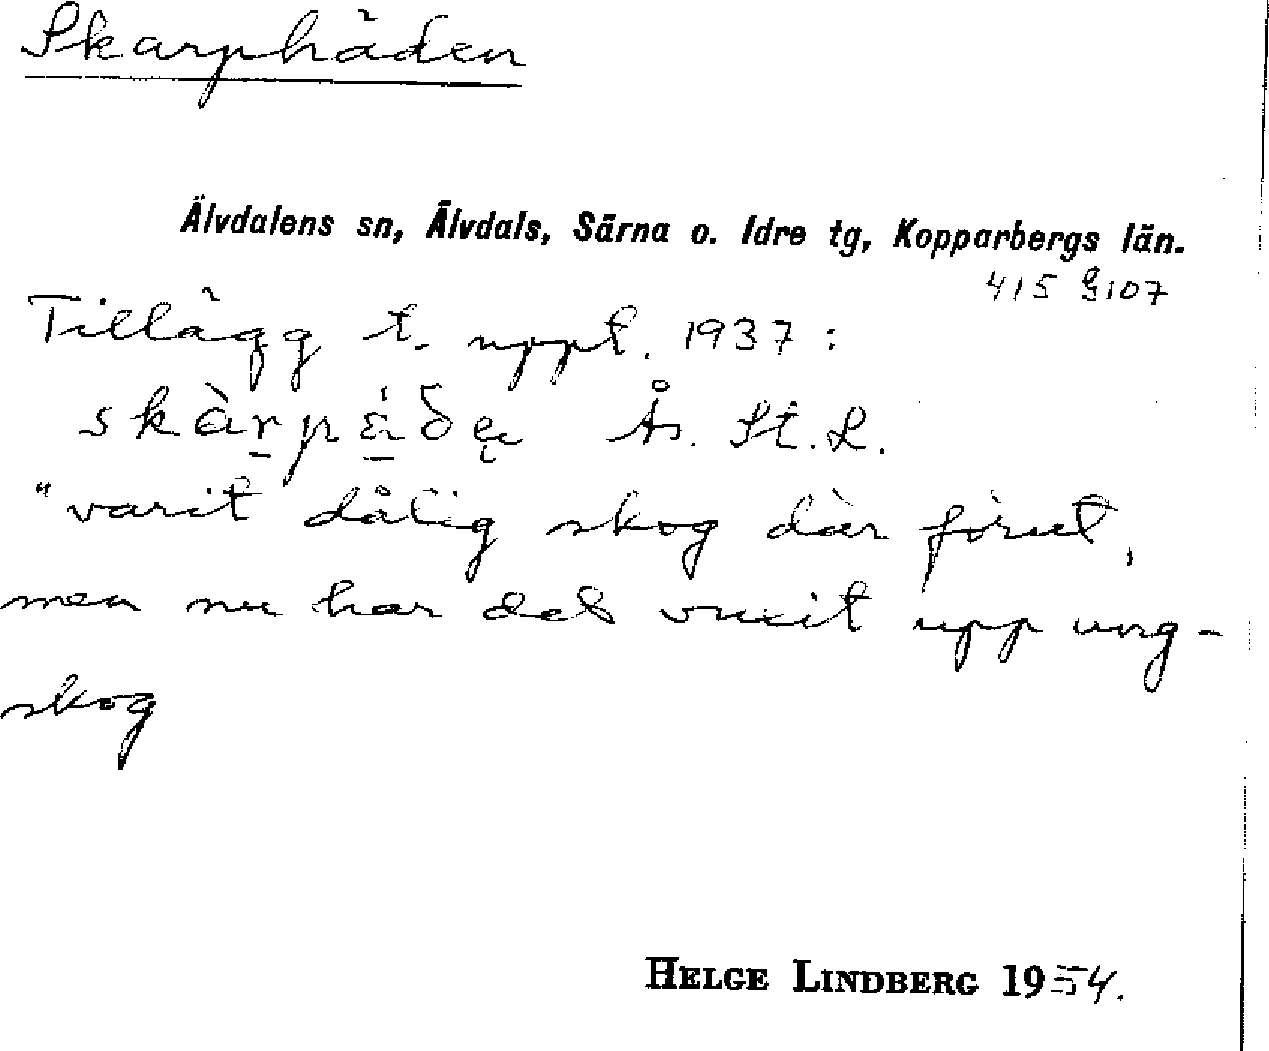 Skarphäden
Älvdalens sn, Älvdals, Särna o. Idre tg, Kopparbergs län.
415 G107
Tillägg t. uppt. 1937:
Ås. St. L.
"varit dålig skog där förut,
men nu har det vuxit upp ung-
skog
HELGE LINDBERG 1954.